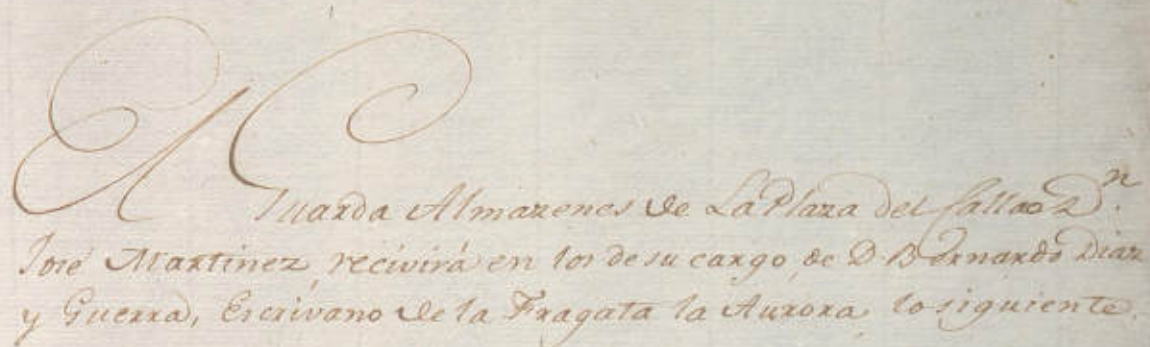 El Guarda Almazenes de La Plaza del Callao Dn.
José Martinez recivirá en los de su cargo de D Bernardo Diaz
y Guerra, Escrivano de la Fragata la Aurora lo siguiente